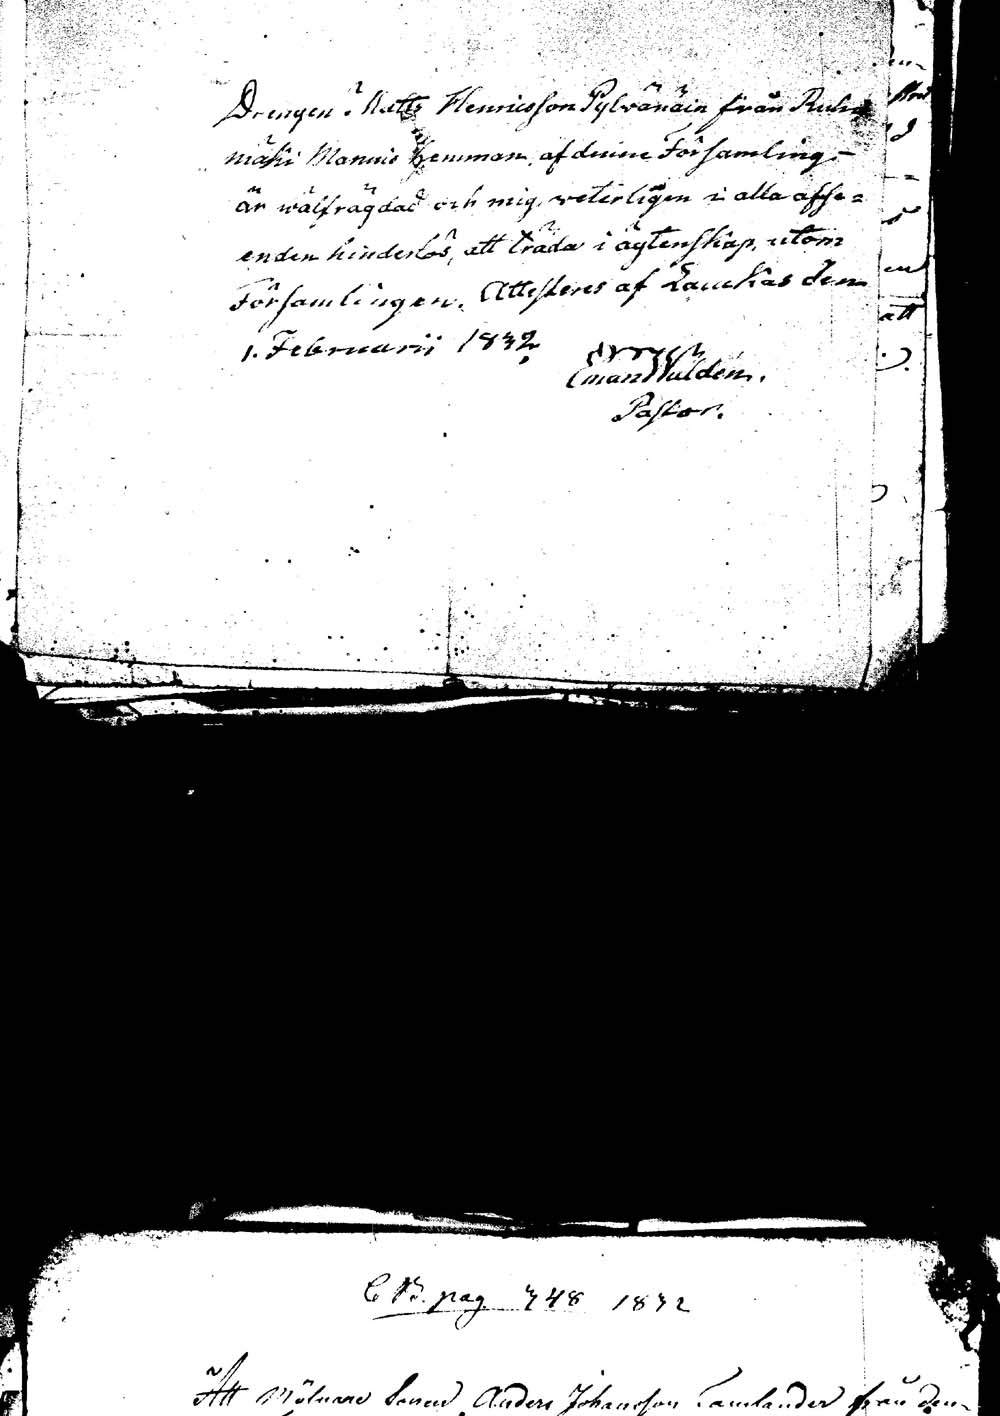 Drengen Matts Henricsson Pylvänäin från Ruha
mäki Mannis Hemman, af denne Församling,
är wälfrägdad och mig veterligen i alla afse=
enden hinderlös, att träda i ägtenskap, utom
Församlingen. Attesteres af Lauckas den
1. Februarii 1832,
Eman Waldén.
Pastor.
att
C B. pag 748 1832
Att Mölnare Sonen Anders Johansson Tamlander från den